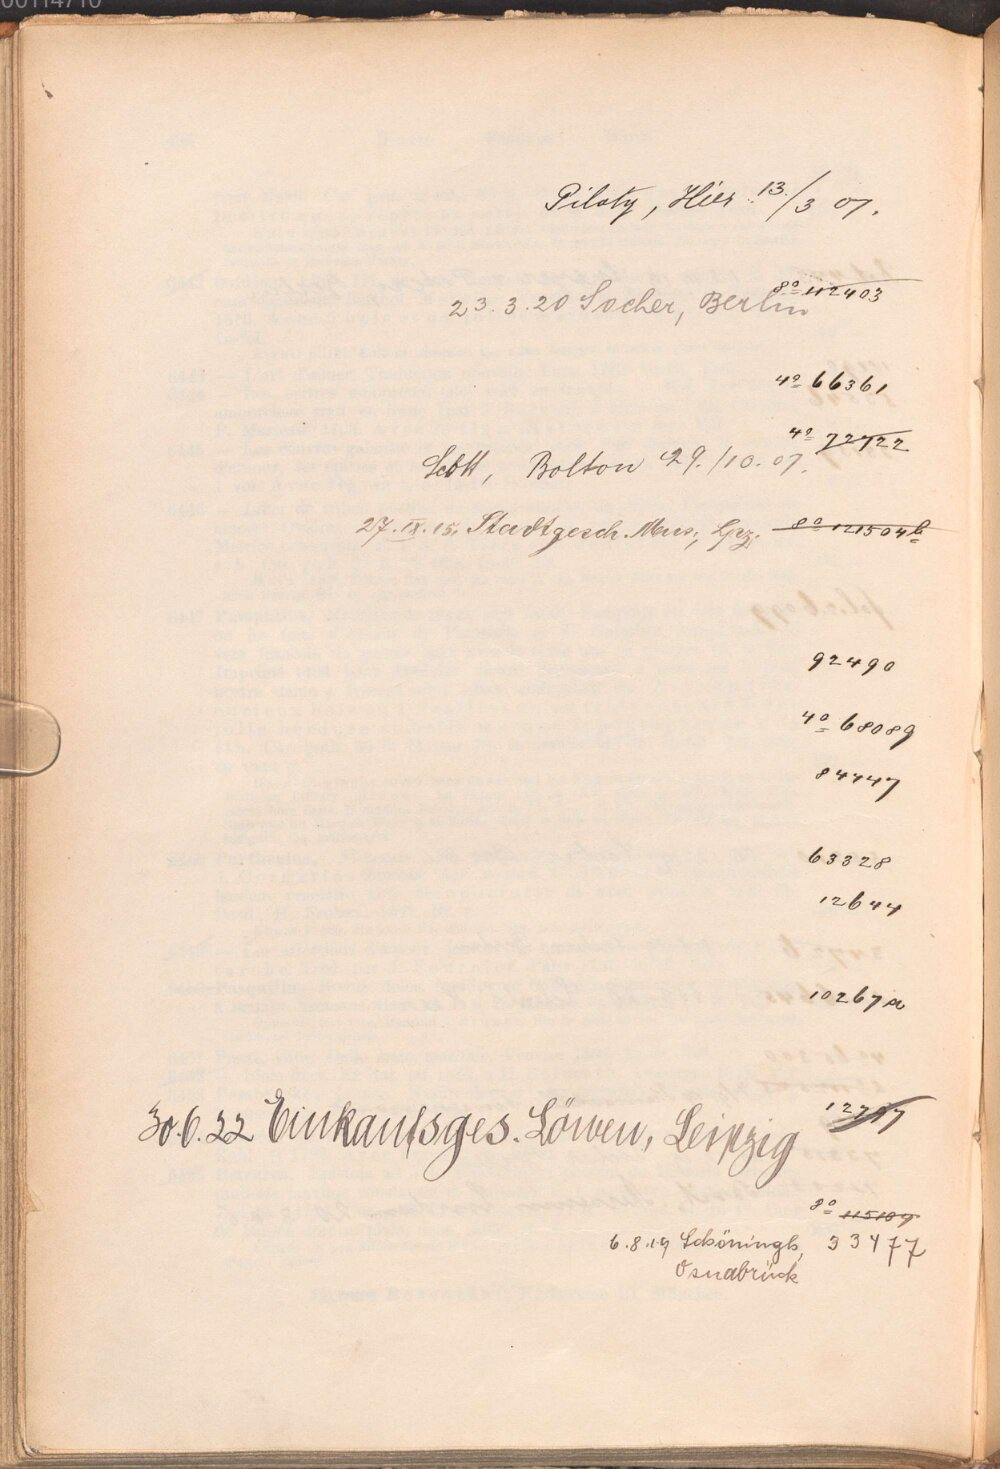 00114710
Piloty, Hier 13/3 07.
8º 112403
23.3.20 Socher, Berlin
4º 66361
4º 72722
Scott, Bolton 29./10. 07.
27.IX.15. Stadtgesch. Mus., Lpz. 8º 121504b
92490
4º 68089
84447
63328
12644
10267a
30.6.22 Einkaufsges. Löwen, Leipzig 12707
8º 115189
6.8.19 Schöningh, 33477
Osnabrück